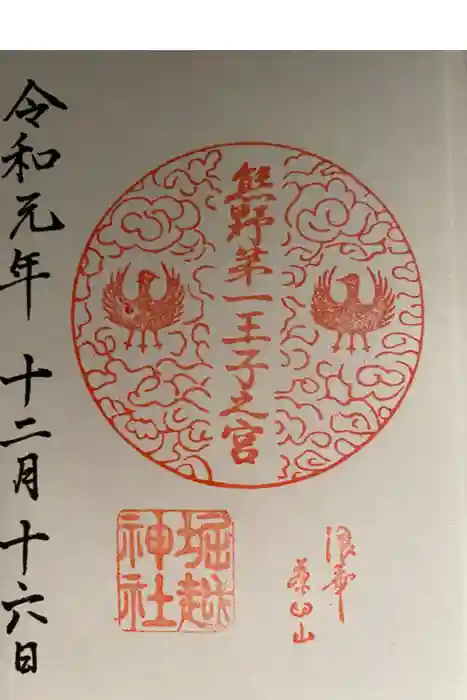 浪華
茶臼山
熊野第一王子之宮
堀越
神社
令和元年 十二月十六日